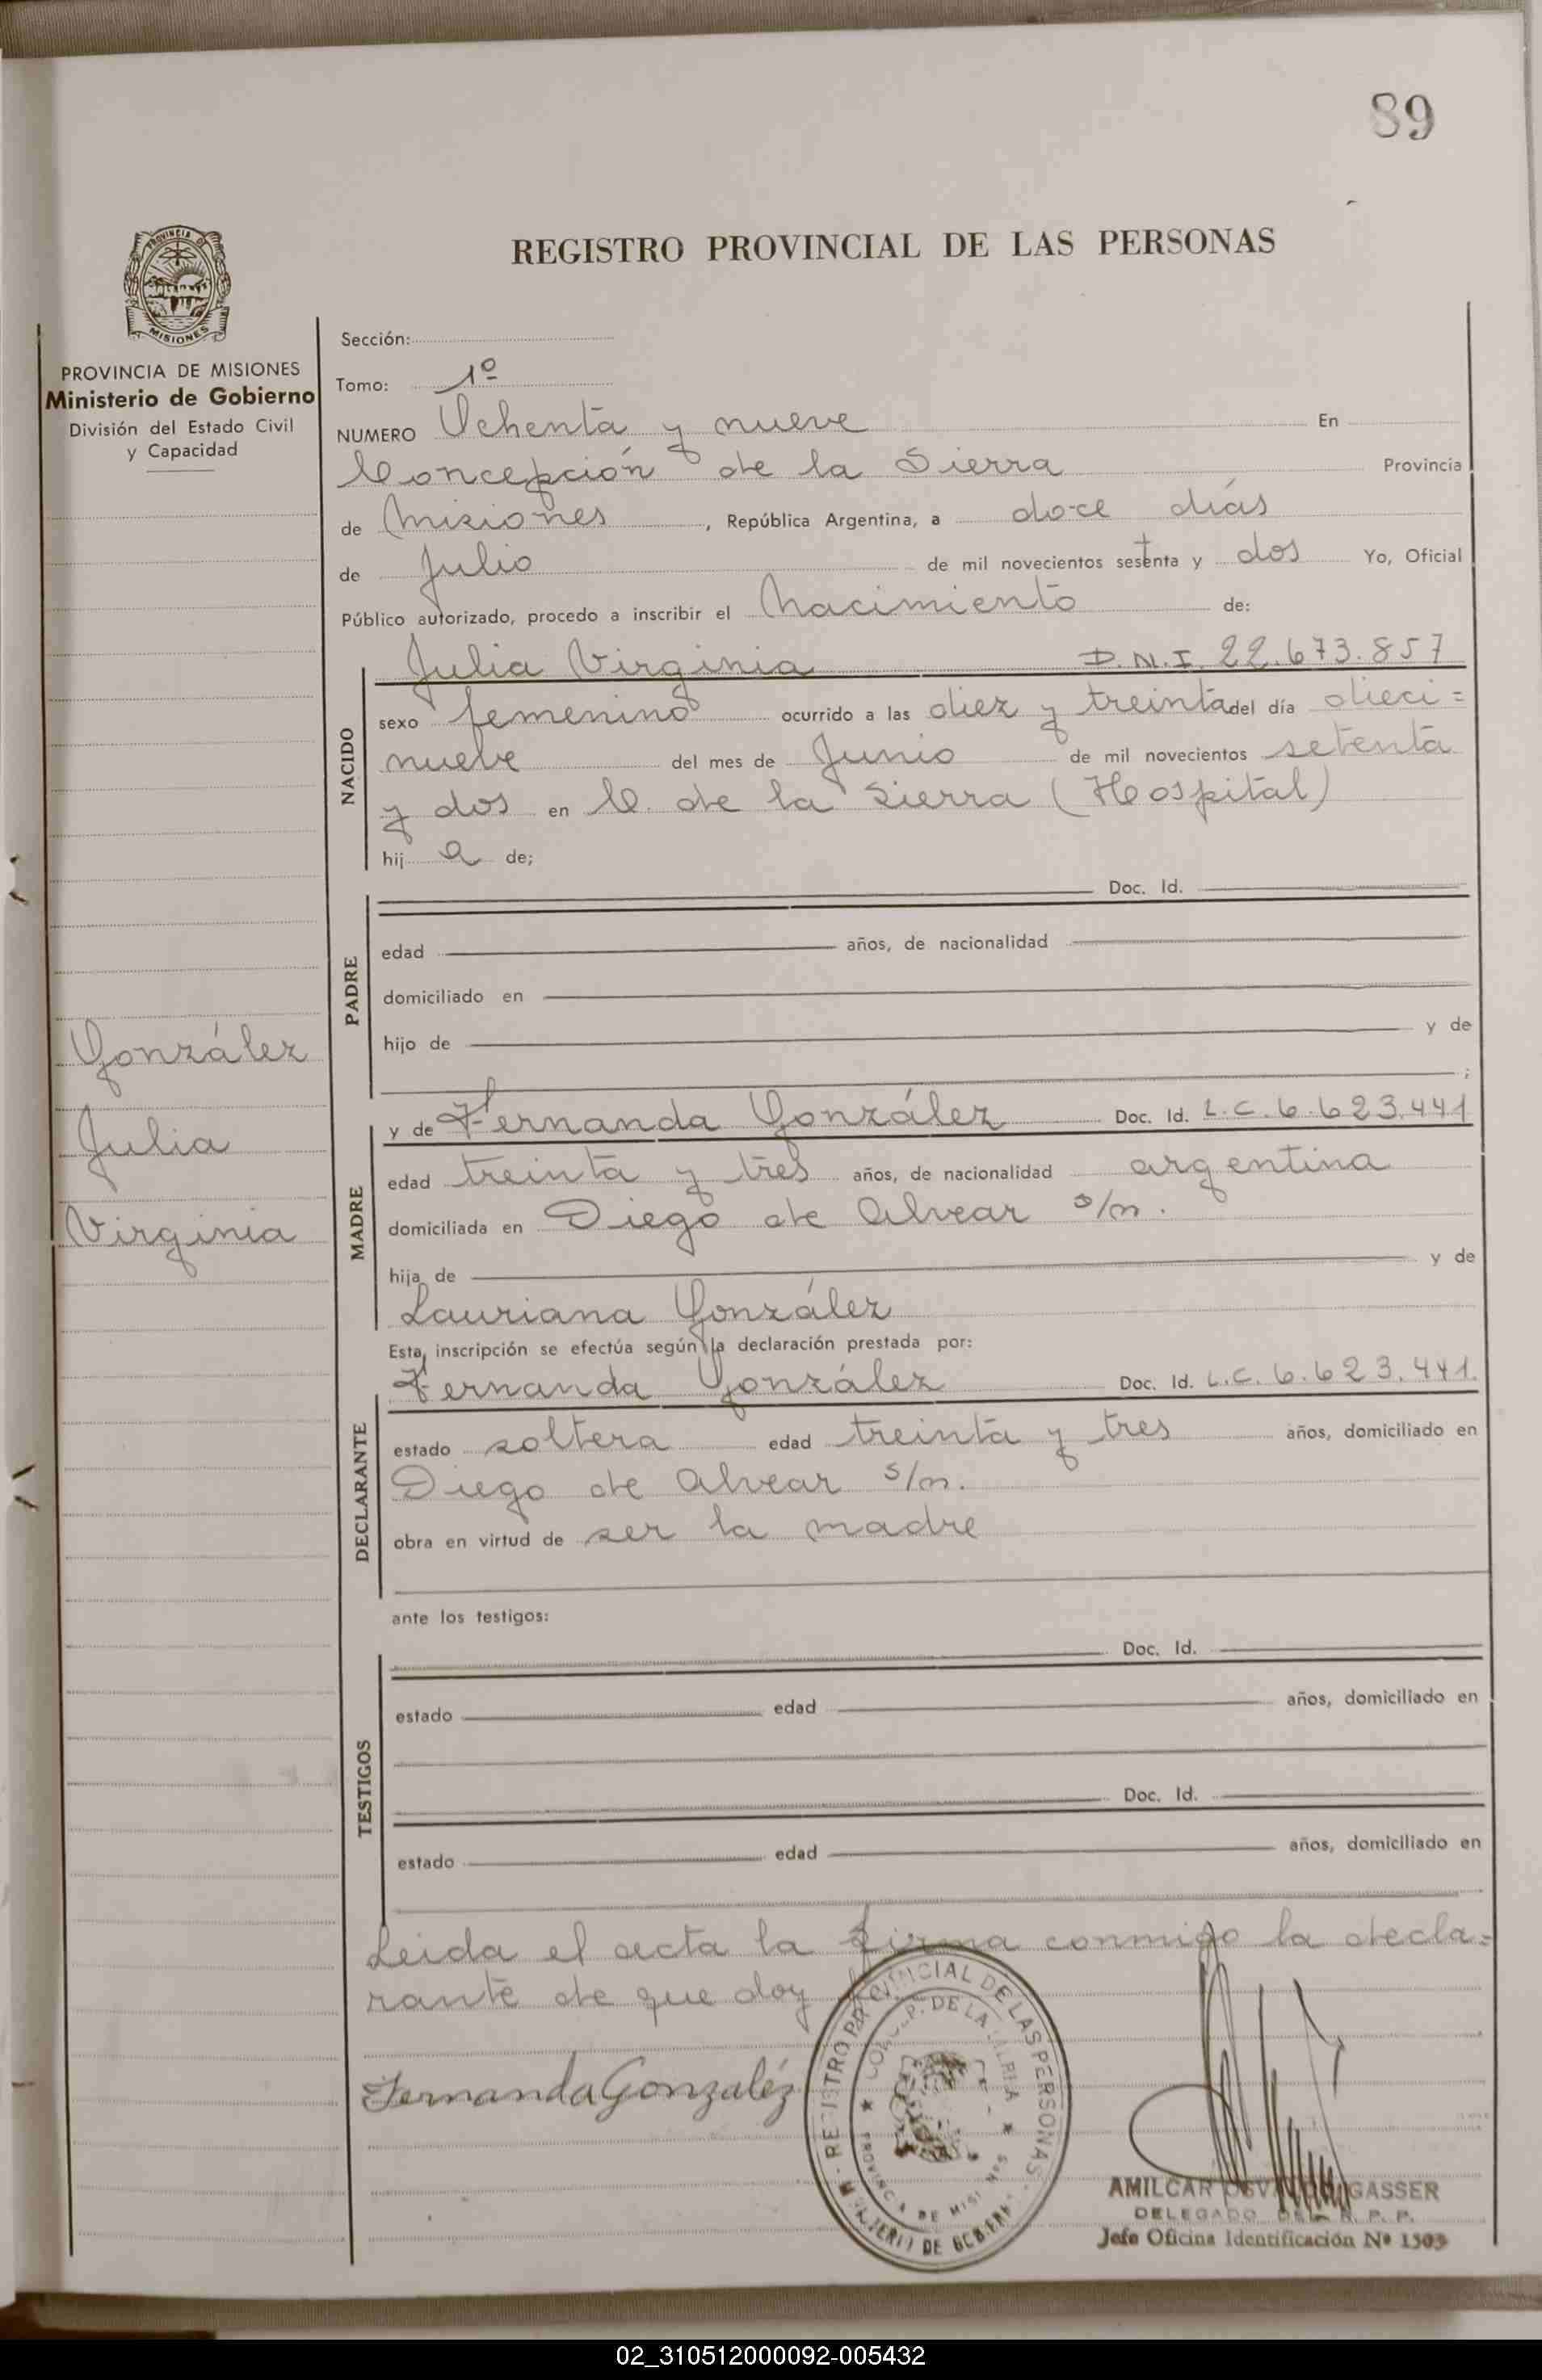 89
REGISTRO PROVINCIAL DE LAS PERSONAS
PROVINCIA DE
MISIONES
PROVINCIA DE MISIONES
Ministerio de Gobierno
División del Estado Civil
y Capacidad
González
Julia
Virginia
Sección:
Tomo: 1º
NUMERO Ochenta y nueve En
Concepción de la Sierra Provincia
de Misiones, República Argentina, a doce días
de Julio de mil novecientos setenta y dos Yo, Oficial
Público autorizado, procedo a inscribir el Nacimiento de:
Julia Virginia D.N.I. 22.673.857
NACIDO
sexo femenino ocurrido a las diez y treinta del día dieci=
nueve del mes de Junio de mil novecientos setenta
y dos en C. de la Sierra (Hospital)
hij a de;
PADRE
Doc. Id.
edad años, de nacionalidad
domiciliado en
hijo de y de
;
MADRE
y de Fernanda González Doc. Id. L.C. 6.623.441
edad treinta y tres años, de nacionalidad argentina
domiciliada en Diego de Alvear s/n.
hija de y de
Lauriana González
Esta inscripción se efectúa según la declaración prestada por:
DECLARANTE
Fernanda González Doc. Id. L.C. 6.623.441.
estado soltera edad treinta y tres años, domiciliado en
Diego de Alvear s/n.
obra en virtud de ser la madre
ante los testigos:
TESTIGOS
Doc. Id.
estado edad años, domiciliado en
Doc. Id.
estado edad años, domiciliado en
Leida el acta la firma conmigo la decla=
rante de que doy
Fernanda Gonzaléz
REGISTRO PROVINCIAL DE LAS PERSONAS
CONCEP. DE LA SIERRA
PROVINCIA DE MISIONES
DE
AMILCAR GASSER
DELEGADO DEL R. P. P.
Jefe Oficina Identificación Nº 1503
02_310512000092-005432